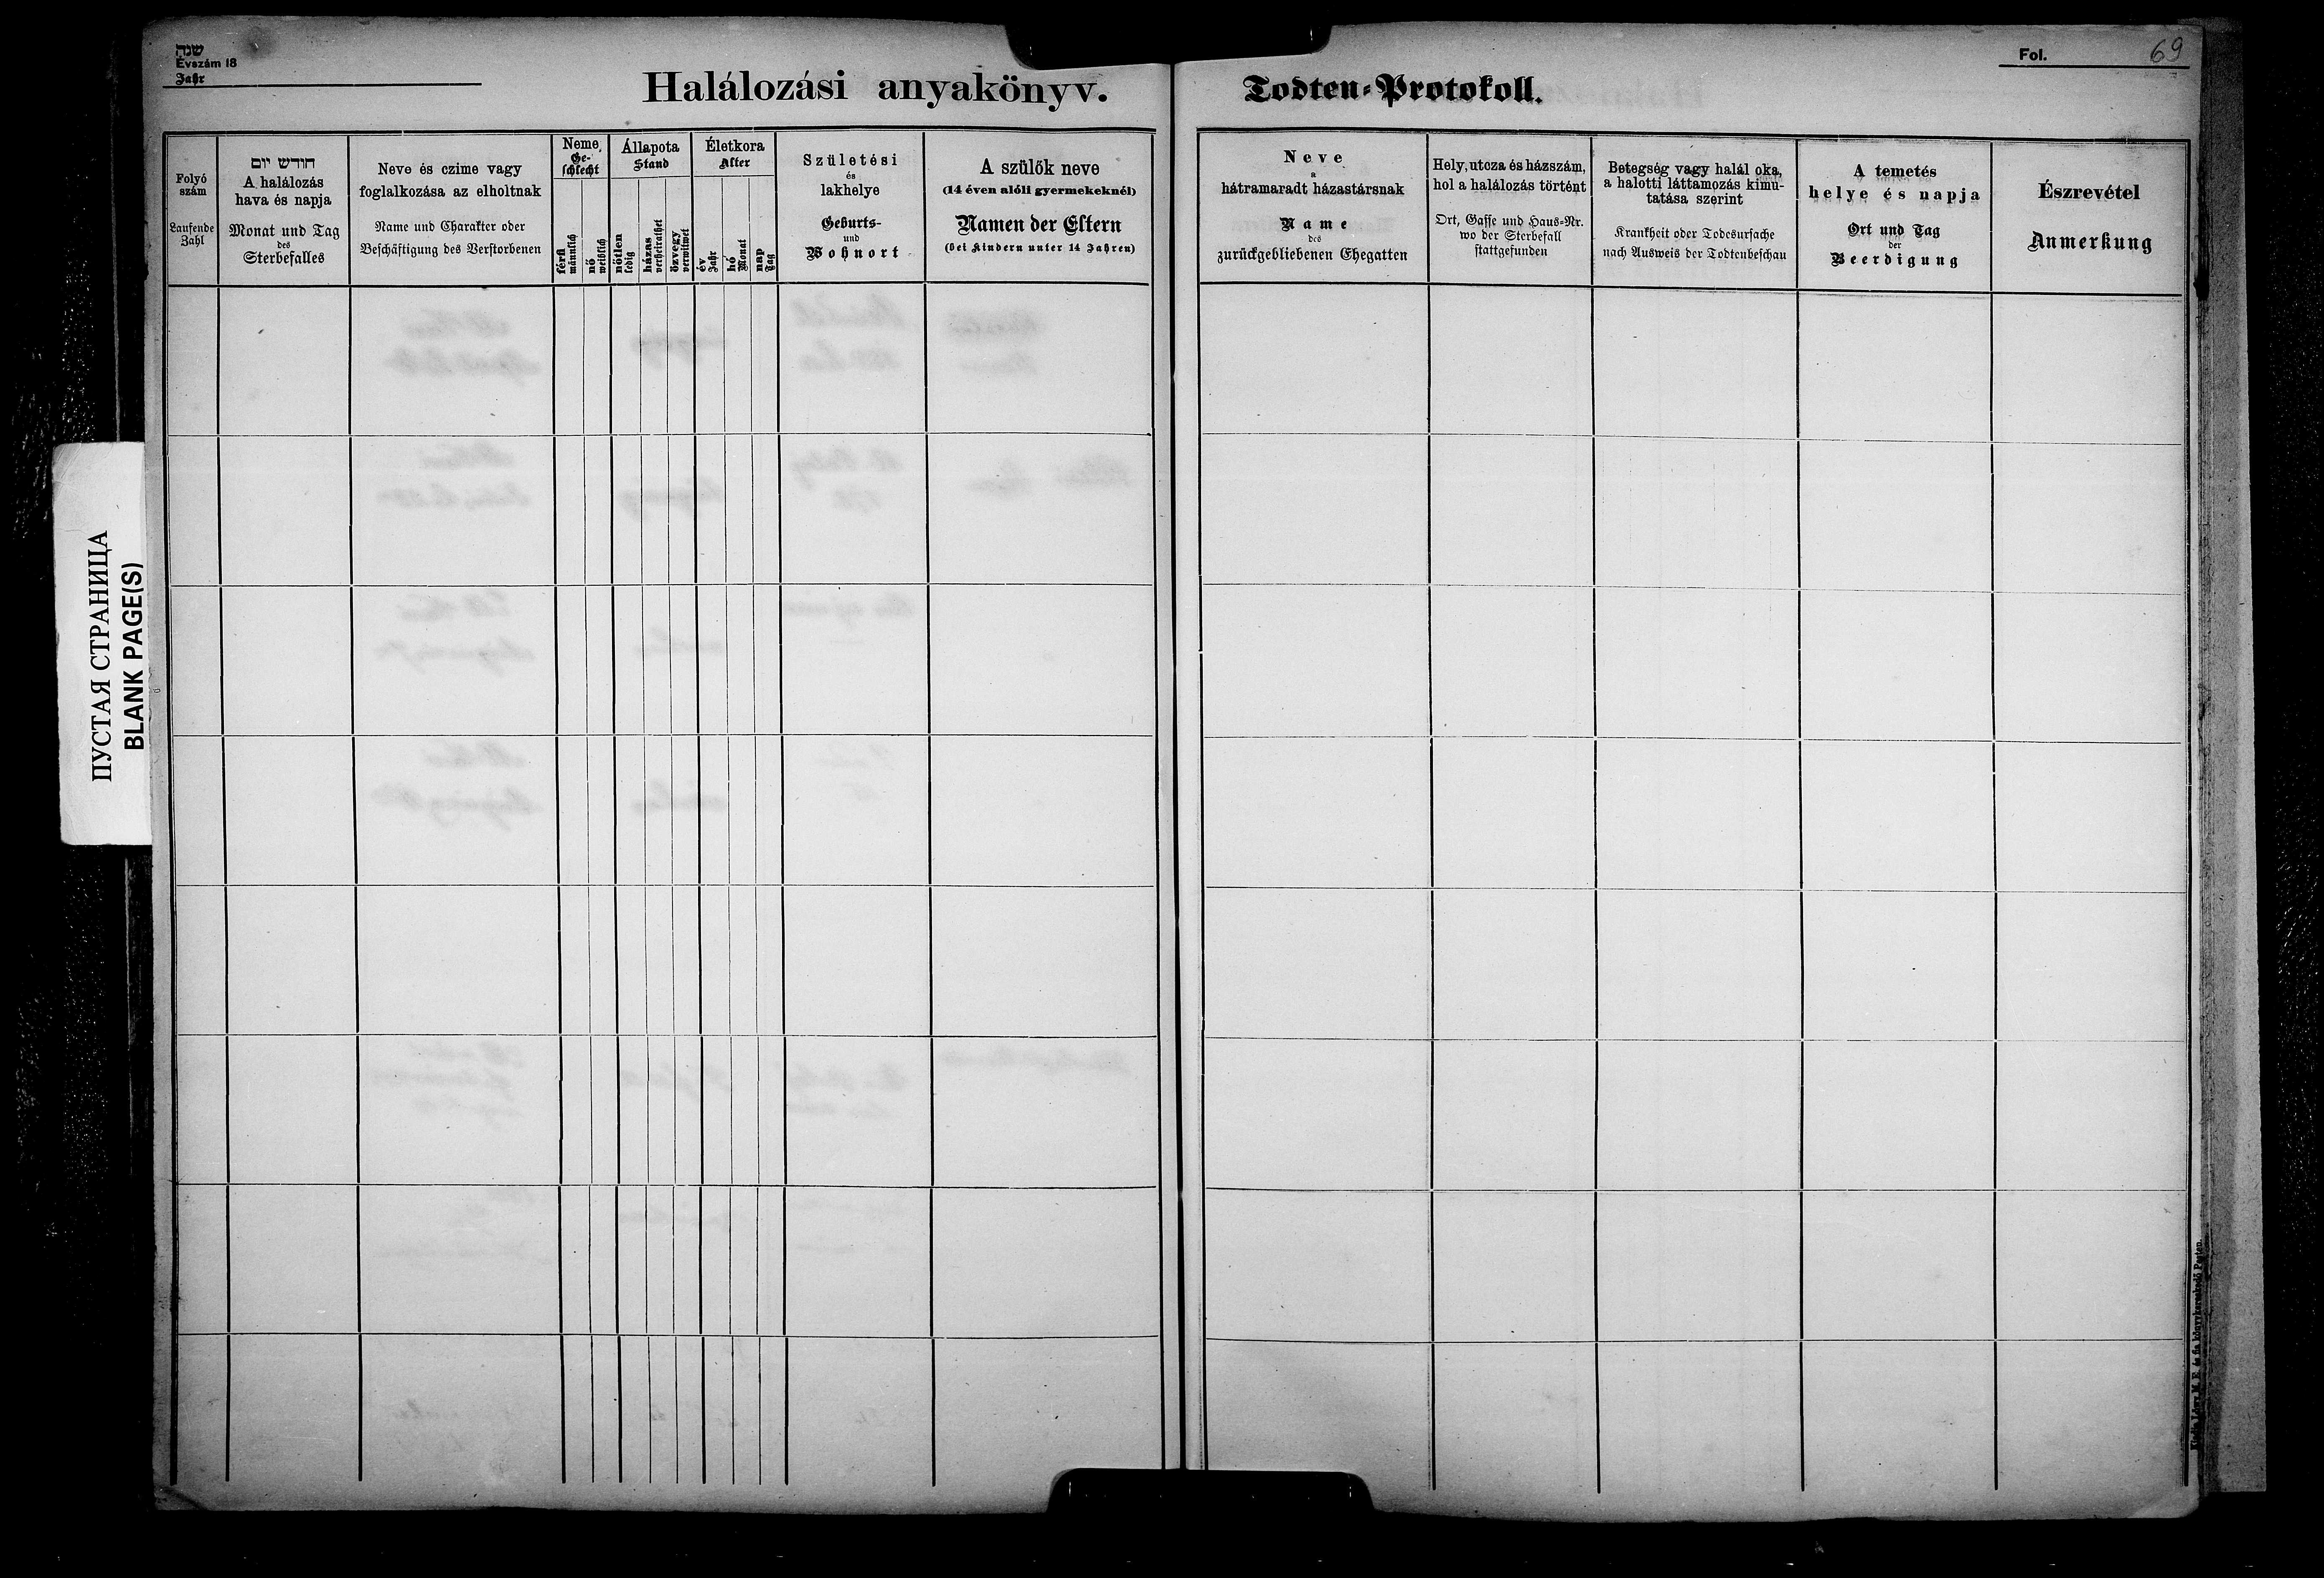 שנה
Évszám 18
Jahr
Halálozási anyakönyv.
Todten-Protokoll.
Fol. 69
Folyó
szám
Laufende
Zahl
חודש יום
A halálozás
hava és napja
Monat und Tag
des
Sterbefalles
Neve és czime vagy
foglalkozása az elholtnak
Name und Charakter oder
Beschäftigung des Verstorbenen
Neme
Ge-
schlecht
férfi
männlich
nő
weiblich
Állapota
Stand
nőtlen
ledig
házas
verheirathet
özvegy
verwitwet
Életkora
Alter
év
Jahr
hó
Monat
nap
Tag
Születési
és
lakhelye
Geburts-
und
Wohnort
A szülők neve
(14 éven alóli gyermekeknél)
Namen der Eltern
(bei Kindern unter 14 Jahren)
Neve
a
hátramaradt házastársnak
Name
des
zurückgebliebenen Ehegatten
Hely, utcza és házszám,
hol a halálozás történt
Ort, Gasse und Haus-Nr.
wo der Sterbefall
stattgefunden
Betegség vagy halál oka,
a halotti láttamozás kimu-
tatása szerint
Krankheit oder Todesursache
nach Ausweis der Todtenbeschau
A temetés
helye és napja
Ort und Tag
der
Beerdigung
Észrevétel
Anmerkung
ПУСТАЯ СТРАНИЦА
BLANK PAGE(S)
M. E. és fia könyvkereskedő Pesten.